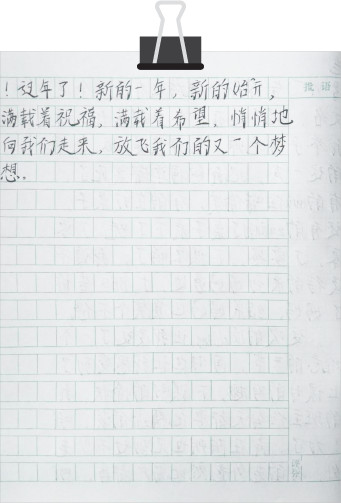 ！过年了！新的一年，新的始元，
批语
满载着祝福，满载着希望，悄悄地
向我们走来，放飞我们的又一个梦
想。